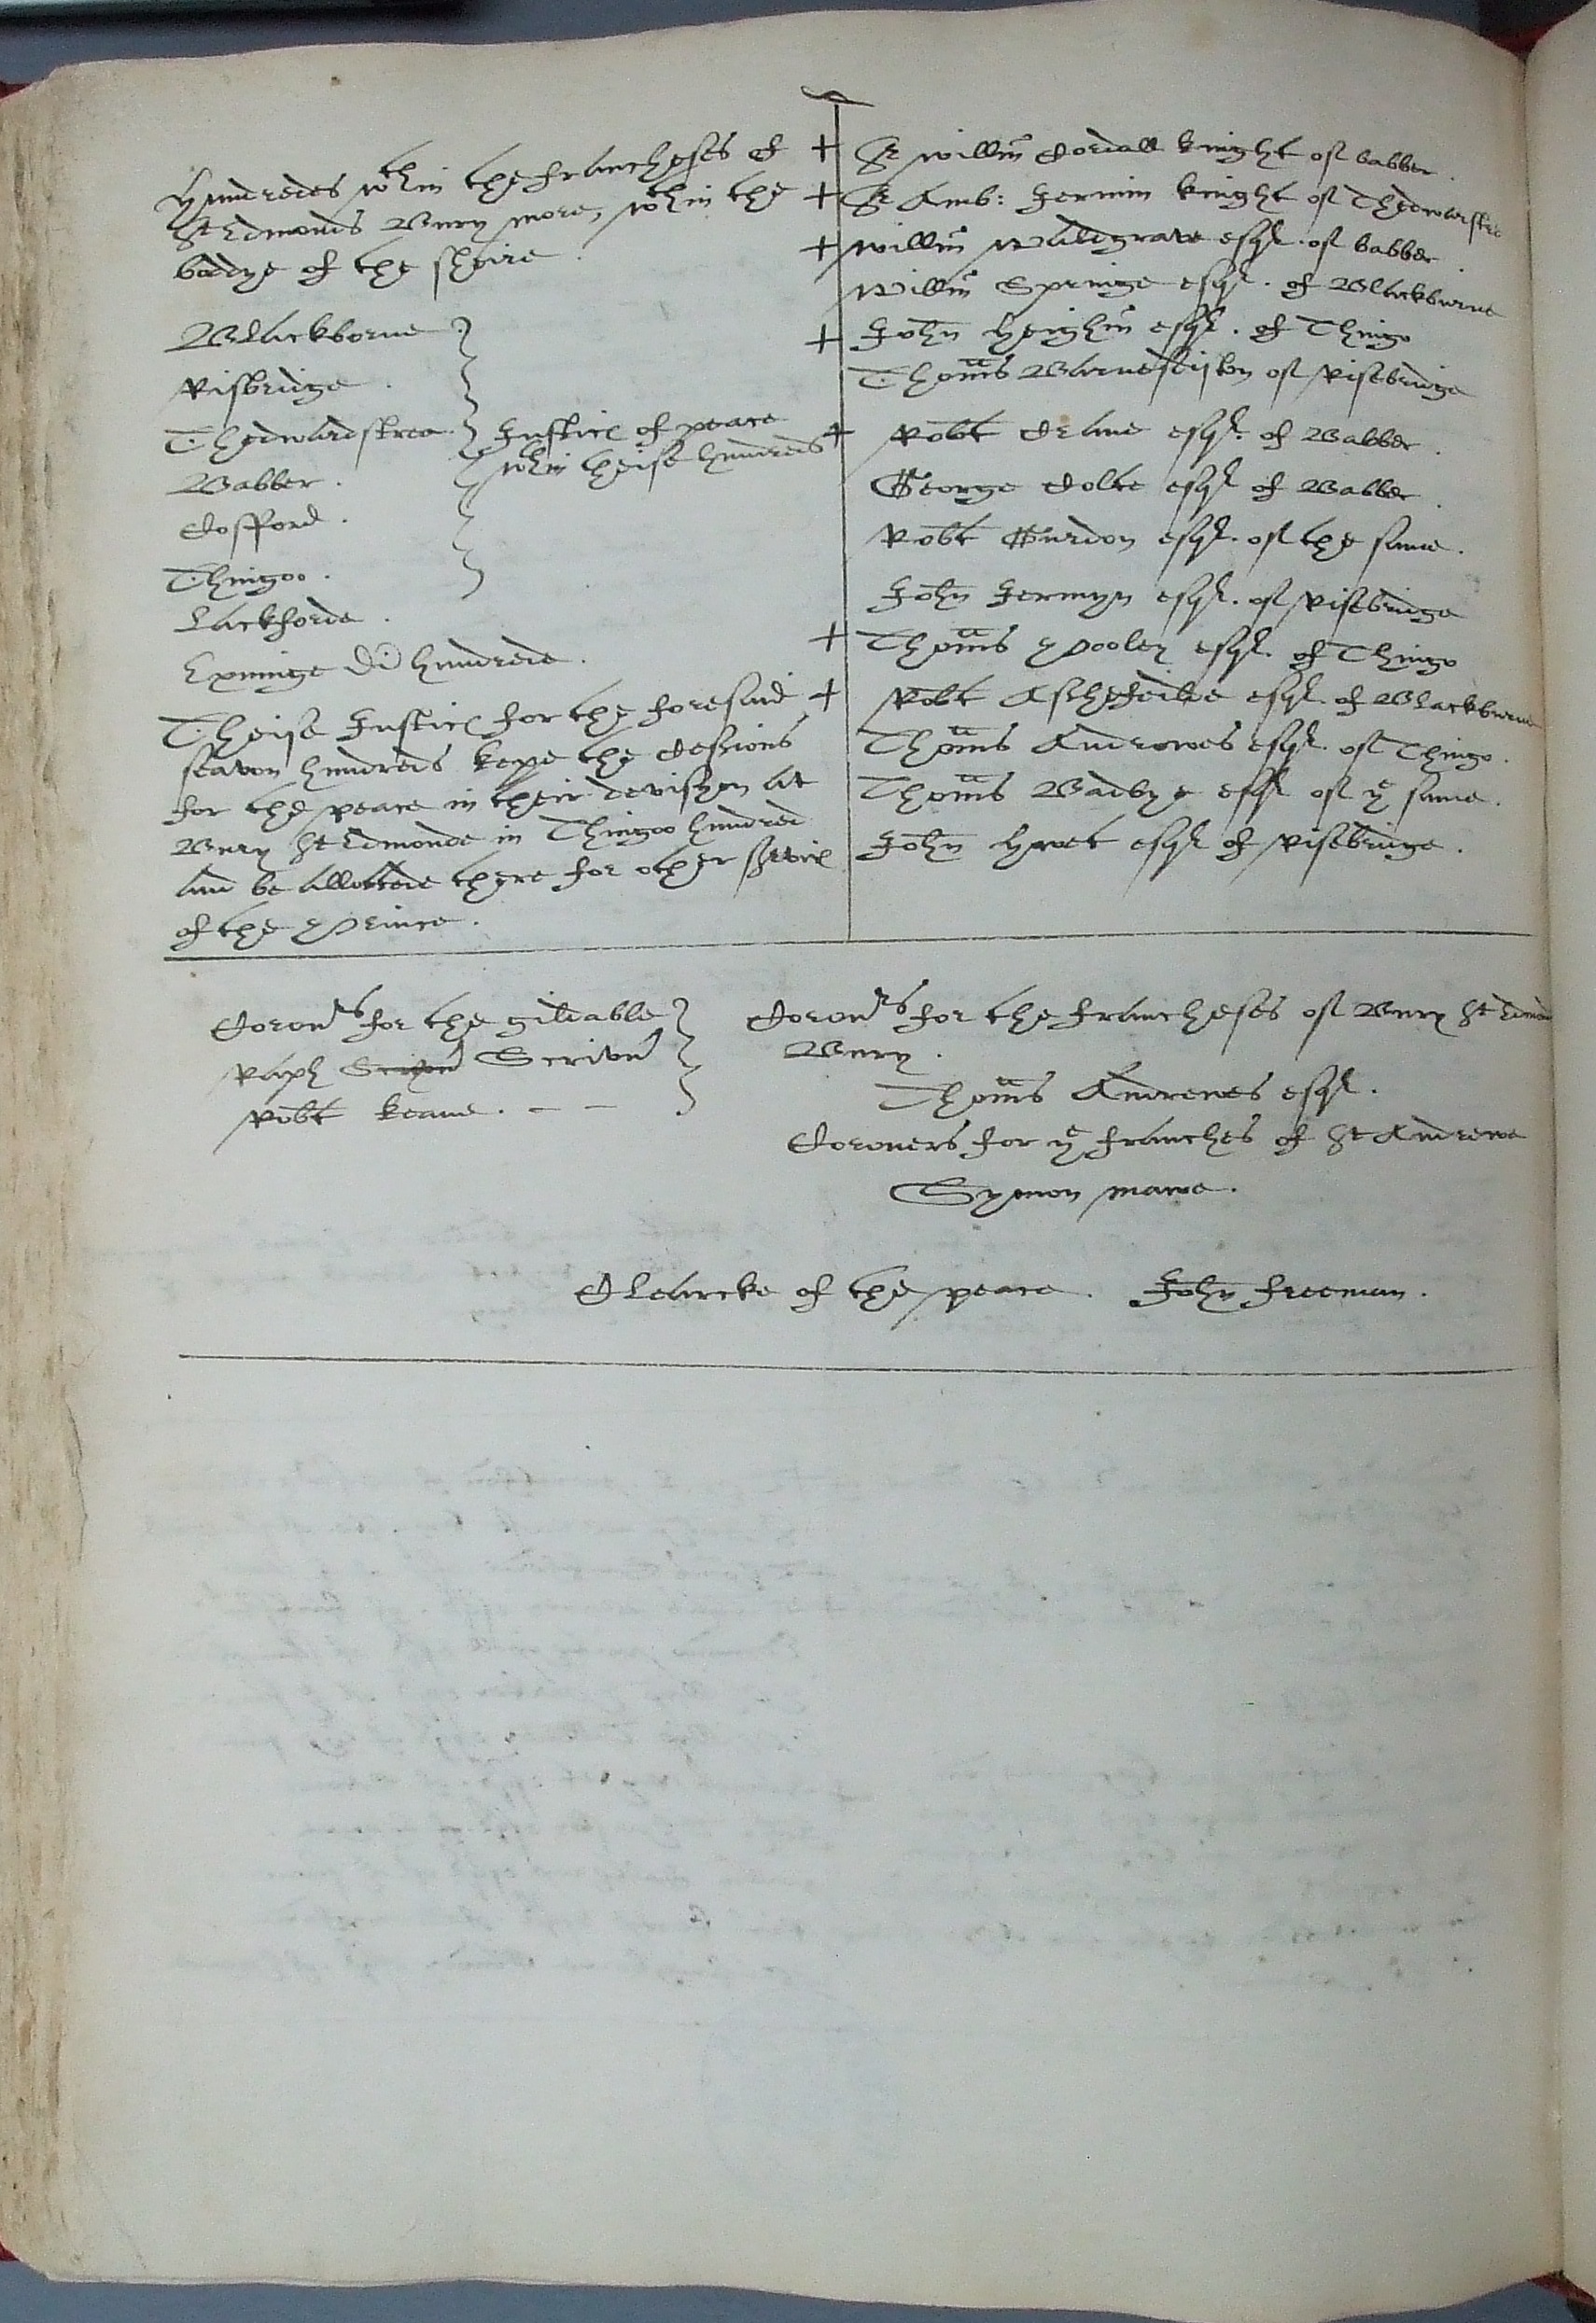 Hundredes wthin the francheses of
St Edmonds Bury more, wthin the
bodye of the sheire.
Blackborne
Risbridge.
Thedwardstree.
Babber.
Cosford.
Thingoo.
Lackforde.
Exninge di hundrede.
Justic of peace
wthin theise hundreds
Theise Justic for the foresaid
seaven hundreds kepe the Sessions
for the peace in their devision at
Bury St Edmonde in Thingoo hundred
and be allotted there for other servic
of the Prince.
+ Sr Willm Cordall knight of babber.
+ Sr Amb: Jermin knight of Thedwastre
+ Willm Waldgrave esqr. of babber
Willm Springe esqr. of Blackburne
+ John Heighm esqr. of Thingo
Thoms Barnerdiston of Risebridge
+ Robt Crane esqr. of Babber.
George Colte esqr of Babber.
Robt Gurdon esqr. of the same.
John Jermyn esqr. of Risebridge
+ Thoms Pooley esqr. of Thingo
+ Robt Aschefeilde esqr. of Blackburne
Thoms Andrewes esqr. of Thingo.
Thoms Badbye esqr of ye same.
John Hunt esqr of Risebridge.
Coronrs for the gildable
Raph Scriven Scrivenr
Robt Keane. - -
Coronrs for the francheses of Bury St Edmond
Bury.
Thoms Andrewes esqr.
Coroners for ye franches of St Andrewe
Symon mawe.
Clearcke of the peace. John Freeman.